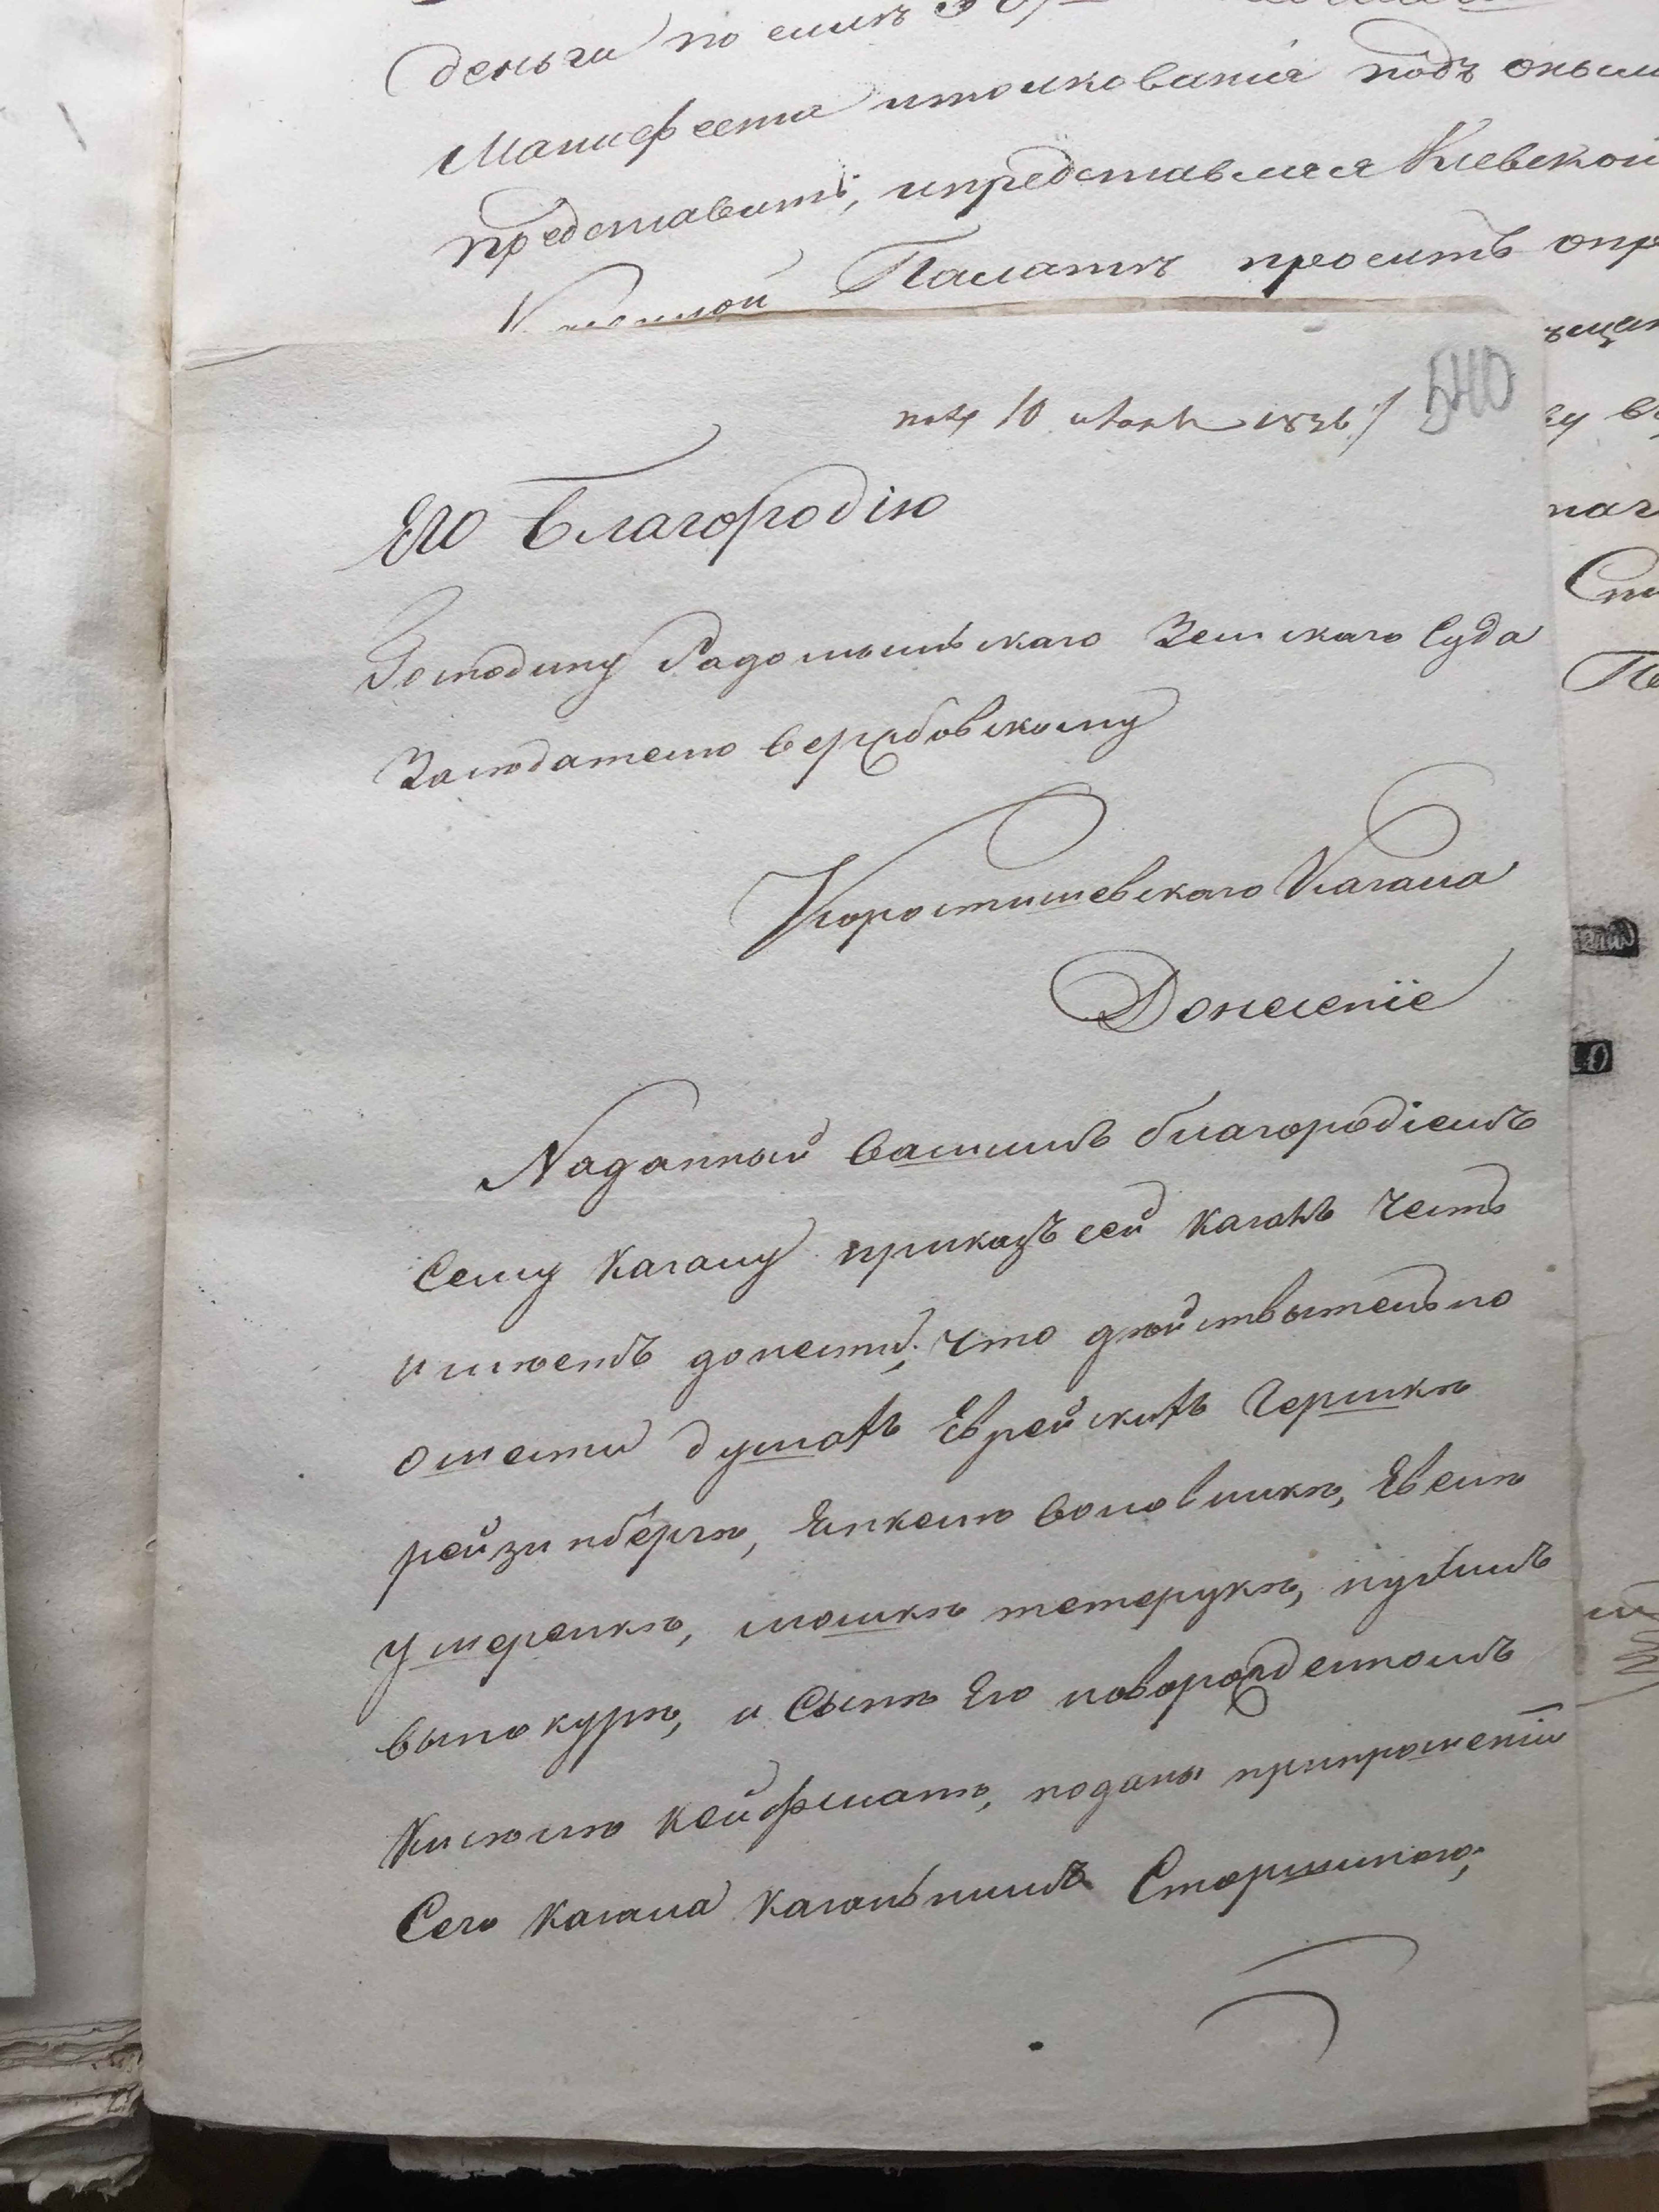 деньги по симъ
Манифеста итолкованія подъ онымъ
представить, ипредставляя Кіевской
Казенной Палатѣ просить опре
10 Іюня 1836
540
Его Благородію
Господину Радомысльскаго Земскаго Суда
Засѣдателю Вербовскому
Коростишевскаго Кагала
Донесеніе
Наданный вашимъ благородіемъ
сему Кагалу приказъ сей Кагалъ честь
имѣетъ донести, что дѣйствытельно
ошести душахъ Еврейскихъ Гершкѣ
рейзинбергѣ, Янкелю воловникѣ,
мошкѣ тетерукѣ,
вынокурѣ, и Сынѣ Его новорожденномъ
поданы припрошеніи
Сего Кагала Кагальнимъ Старшиною,